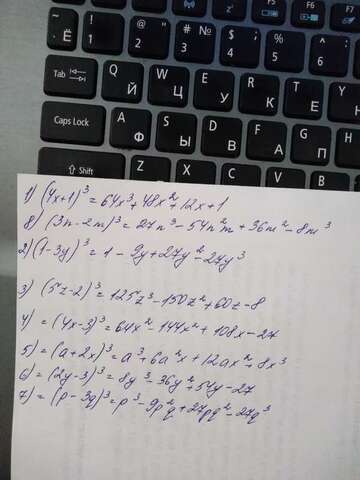 F5
F6
F7
Ё
! 1
@ " 2
# № 3
$ ; 4
% 5
^ : 6
Tab
Q Й
W Ц
E У
R К
T Е
Caps Lock
A Ф
S Ы
D В
F А
Shift
1) (4x+1)³ = 64x³+48x²+12x+1
8) (3n-2m)³ = 27n³-54n²m+36m²-8m³
2) (1-3y)³ = 1-9y+27y²-27y³
3) (5z-2)³ = 125z³-150z²+60z-8
4) = (4x-3)³ = 64x²-144x²+108x-27
5) = (a+2x)³ = a³+6a²x+12ax²+8x³
6) = (2y-3)³ = 8y³-36y²+54y-27
7) = (p-3q)³ = p³-9p²q+27pq²-27q³